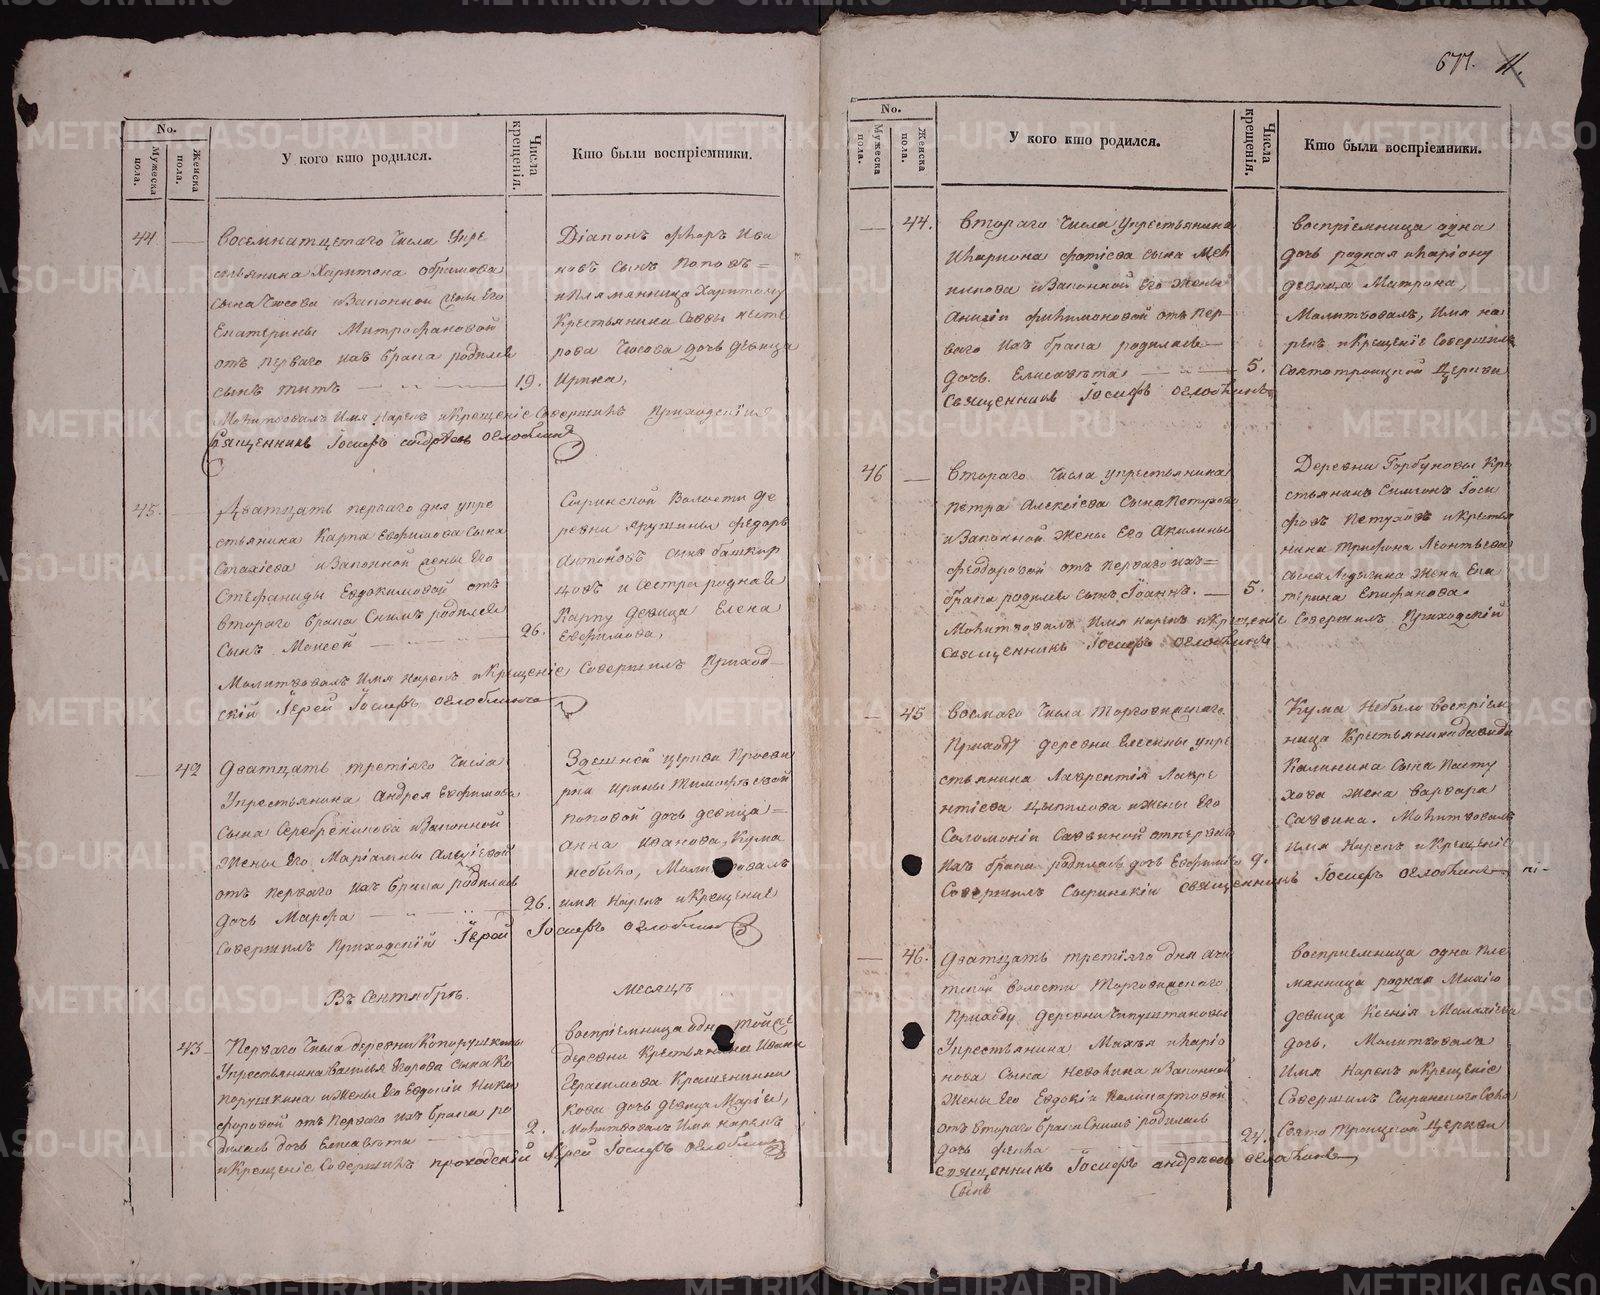 No.
Мужеска пола.
Женска пола.
У кого кто родился.
Числа крещенія.
Кто были воспріемники.
44
Восемнатцатаго Числа Упре
стьянина Харитона
сына Чюсова изаконной жены Его
Екатерины Митрофановой
отъ перваго ихъ брака родился
сынъ титъ
19.
Діаконъ Ива
новъ сынъ Поповъ=
иплемянница Харитону
Крестьянина Саввы
рова Чюсова дочь девица
Ирина,
Молитвовалъ Имя Нарекъ иКрещеніе Совершилъ приходскій
Священникъ Іосифъ Оглоблинъ
45.
Дватцать перваго дня упре
стьянина Карпа Евфимова Сына
изаконной жены Его
Стефаниды Евдокимовой отъ
втораго брака Снимъ родился
Сынъ Моисей
26.
Волости де
ревни Ярушины Федоръ
Антоновъ сынъ башкир
цовъ и сестра родная
Карпу девица Елена
Евфимова,
Молитвовалъ Имя нарекъ иКрещеніе Совершилъ Приход
скій Іерей Іосифъ Оглоблинъ
42
Дватцать третіяго Числа
Упрестьянина Андрея Евфимова
Сына Серебреникова изаконной
Жены Его Маріамны
отъ перваго ихъ брака родилась
дочь Марфа
26.
Здешней церкви Просви
рни Ирины Тимофеевой
поповой дочь девица=
Анна Иванова, Кума
небыло, Молитвовалъ
имя Нарекъ иКрещеніе
совершилъ Приходскій Іерей Іосифъ Оглоблинъ
Въ Сентябръ.
Месяцъ
43
Перваго Числа деревни Копорушкины
Упрестьянина Василья Егорова сына Ко
порушкина иЖены Его Евдокіи Ники
форовой отъ Перваго ихъ брака ро
дилась дочь Елисавета
2.
воспріемница одна тойже
деревни Крестьянина Ивана
Герасимова Крашенинни
кова дочь девица Марія,
Молитвовалъ Имя нарекъ
иКрещеніе Совершилъ приходскій Іерей Іосифъ Оглоблинъ
677. 11.
No.
Мужеска пола.
Женска пола.
У кого кто родился.
Числа крещенія.
Кто были воспріемники.
44.
Втораго Числа Упрестьянина
Иларіона Фотіева сына
изаконной Его Жены
Филимоновой отъ пер
ваго ихъ брака родилась
дочь Елисавета
5.
Воспріемница одна
дочь родная Иларіону
девица Матрона,
Молитвовалъ, Имя на
рекъ иКрещеніе Совершилъ
Святотроицкой Церкви
Священникъ Іосифъ Оглоблинъ
46
Втораго Числа упрестьянина
Петра Алексіева Сына Петухова
изаконной Жены Его Акилины
Феодоровой отъ перваго ихъ=
брака родился сынъ Іоаннъ.
5.
Деревни Горбуновы Кре
стьянинъ Симеонъ Іоси
фовъ Петуховъ иКрестья
нина Трифона Леонтьева
сына жена Ека
терина Епифанова.
Молитвовалъ Имя нарекъ иКрещеніе Совершилъ Приходскій
священникъ Іосифъ Оглоблинъ
45
Восмаго Числа Торговишскаго
Приходу деревни упре
стьянина Лаврентія Лавре
нтіева Цыпилова иЖены Его
Соломоніи Саввиной отперваго
ихъ брака родилась дочь Евфимія
9.
Кума Небыло Воспріем
ница Крестьянина давида
Калинина Сына Пасту
хова жена Варвара
Саввина. Молитвовалъ
имя Нарекъ иКрещеніе
Совершилъ Сыринскій священникъ Іосифъ Оглоблинъ
46.
Дватцать третіяго дня Ачи
тской волости Торговижскаго
Приходу деревни
Упрестьянина Иларіо
нова Сына Неволина изаконной
Жены Его Евдокіи
отъ втораго брака Снимъ родилась
дочь
24.
Воспріемница одна пле
мянница родная
девица Ксенія
дочь, Молитвовалъ
Имя Нарекъ иКрещеніе
Совершилъ Сыринскаго Села
Свято Троицкой Церкви
священникъ Іосифъ Андреевъ Оглоблинъ
Сынъ
METRIKI.GASO-URAL.RU